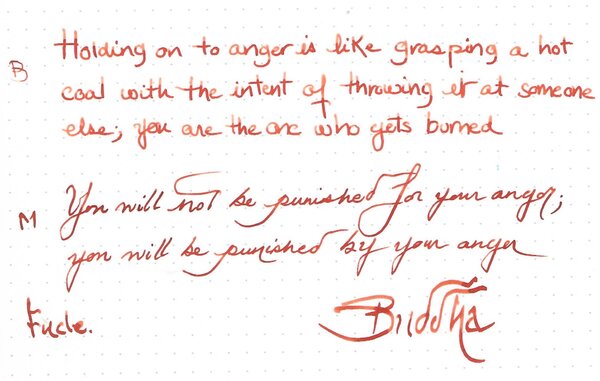 B Holding on to anger is like grasping a hot
coal with the intent of throwing it at someone
else; you are the one who gets burned
M You will not be punished for your anger;
you will be punished by your anger
Fude. Buddha